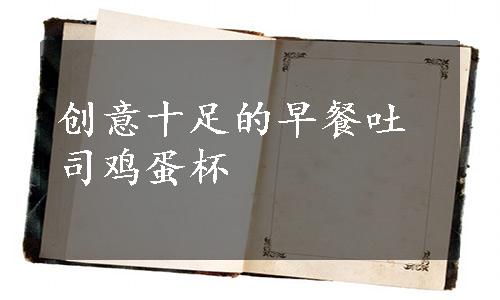 创意十足的早餐吐
司鸡蛋杯